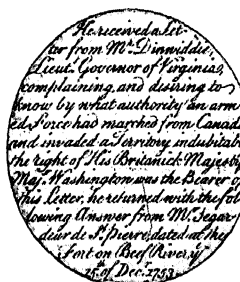 He received a Let
ter from Mr. Dinwiddie,
Lieut. Governor of Virginia,
complaining, and desiring to
know by what authority an arm
ed Force had marched from Canada
and invaded a Territory indubitably
the right of His Britanick Majesty
Majr. Washington was the Bearer of
this Letter, he returned with the fol
lowing Answer from Mr. Legar
deur de St. Pierre, dated at the
Fort on Beef River,
15th of Decr. 1753